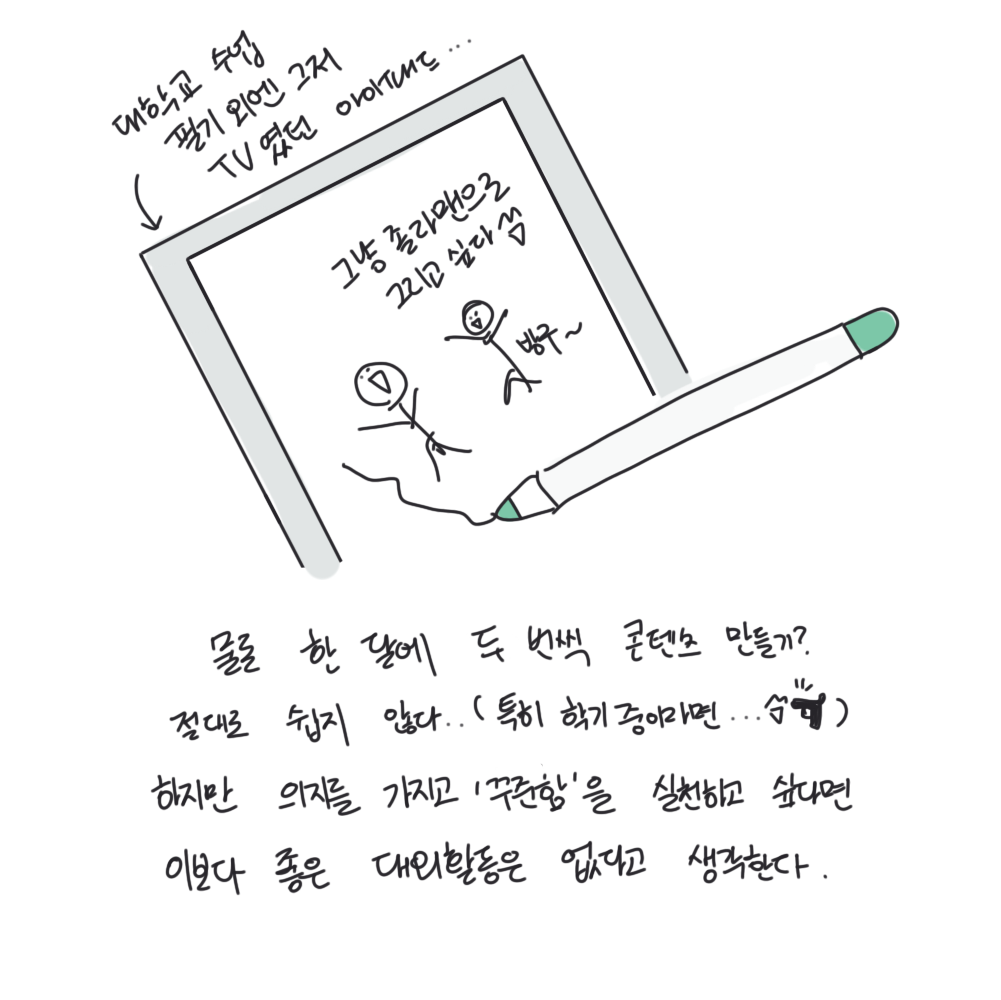 대학교 수업
필기 외엔 그저
TV 였던 아이패드 ...
그냥 졸라맨으로
그리고 싶다 씀
방구~
물론 한 달에 두 번씩 콘텐츠 만들기?
절대로 쉽지 않다..(특히 학기중이라면...)
하지만 의지를 가지고 '꾸준함'을 실천하고 싶다면
이보다 좋은 대외활동은 없다고 생각한다.